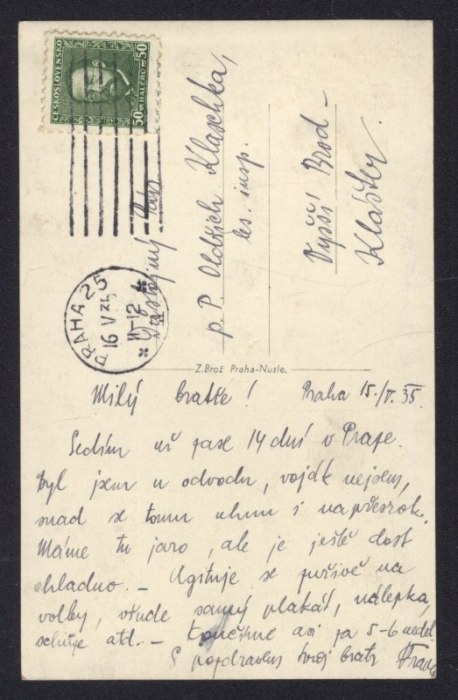 ČESKOSLOVENSKO
50 HALÉŘŮ 50
PRAHA 25
16 V 35
11-12
Důstojný Pán
p. P. Oldřich Klaschka,
les. insp.
Vyšší Brod -
Klášter.
Z. Brož Praha-Nusle.
Milý bratře! Praha 15./V. 35.
Sedím už zase 14 dní v Praze.
Byl jsem u odvodu, voják nejsem,
snad se tomu uhnu i napřesrok.
Máme tu jaro, ale je ještě dost
chladno. - Agituje se pořivě na
volby, všude samý plakát, nálepka,
schůze atd. - Končíme asi za 5-6 neděl
S pozdravem tvůj bratr Fran